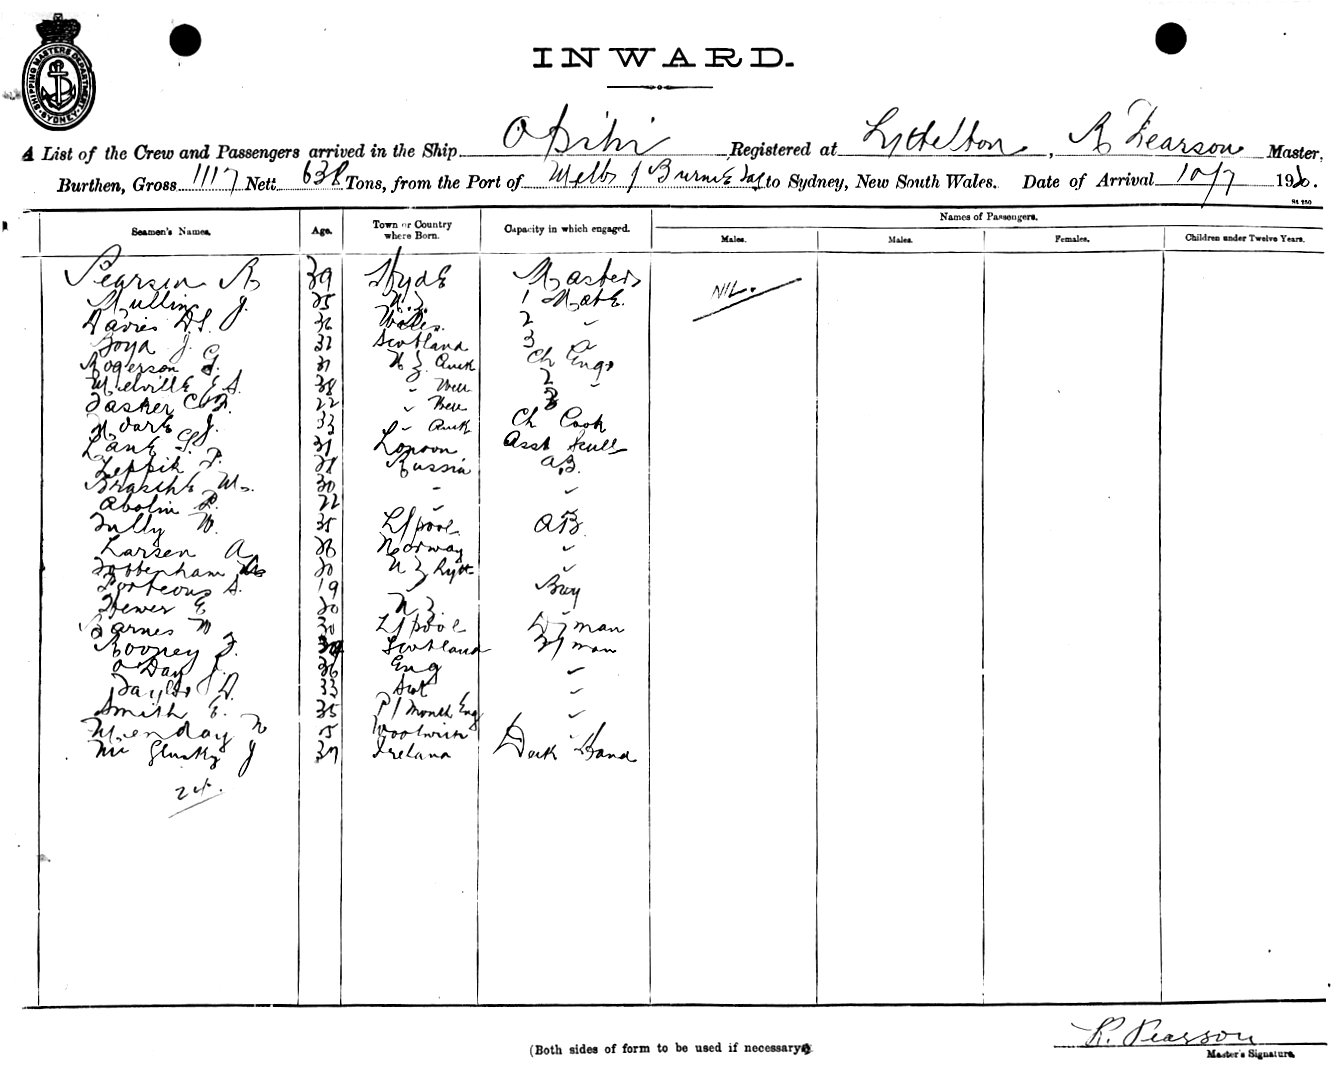 SHIPPING MASTERS DEPARTMENT. SYDNEY.
INWARD.
A List of the Crew and Passengers arrived in the Ship Opihi Registered at Lyttelton, R Pearson Master,
Burthen, Gross 1117 Nett 638 Tons, from the Port of Melb / Burnie Tas to Sydney, New South Wales. Date of Arrival 10/7 19
Seamen's Names. Age. Town or Country where Born. Capacity in which engaged. Names of Passengers.
Males. Males. Females. Children under Twelve Years.
Pearson R 39 Hyde Master NIL.
Mullin J. 25 N.Z. 1 Mate.
Davies D.S. 36 Wales. 2 "
Boyd J. 32 Scotland 3 "
Rogerson G. 31 N Z. Auck Ch Engr
Melville E S. 38 " Well 2 "
Tasker C. 22 " Well 3
J. 33 " Auck Ch Cook
Lane G. 31 London Asst Scull
Zeppik P. 28 Russia AB.
M. 30 " "
Abolin P. 22 " "
Tully W. 35 L/pool AB.
Larsen A 26 Norway "
Tottenham 20 N Z Lytt "
Porteous S. 19 Boy
Hewer E 20 N Z. "
Barnes W 30 L/pool D/man
Rooney F. Scotland F/man
O'Day J. 36 Eng "
Taylor D. 33 Scot "
Smith E. 35 P/Mouth Eng "
Menday W Woolwich "
Mc Glusky J 37 Ireland Deck Hand
24.
(Both sides of form to be used if necessary)
R. Pearson
Master's Signature.